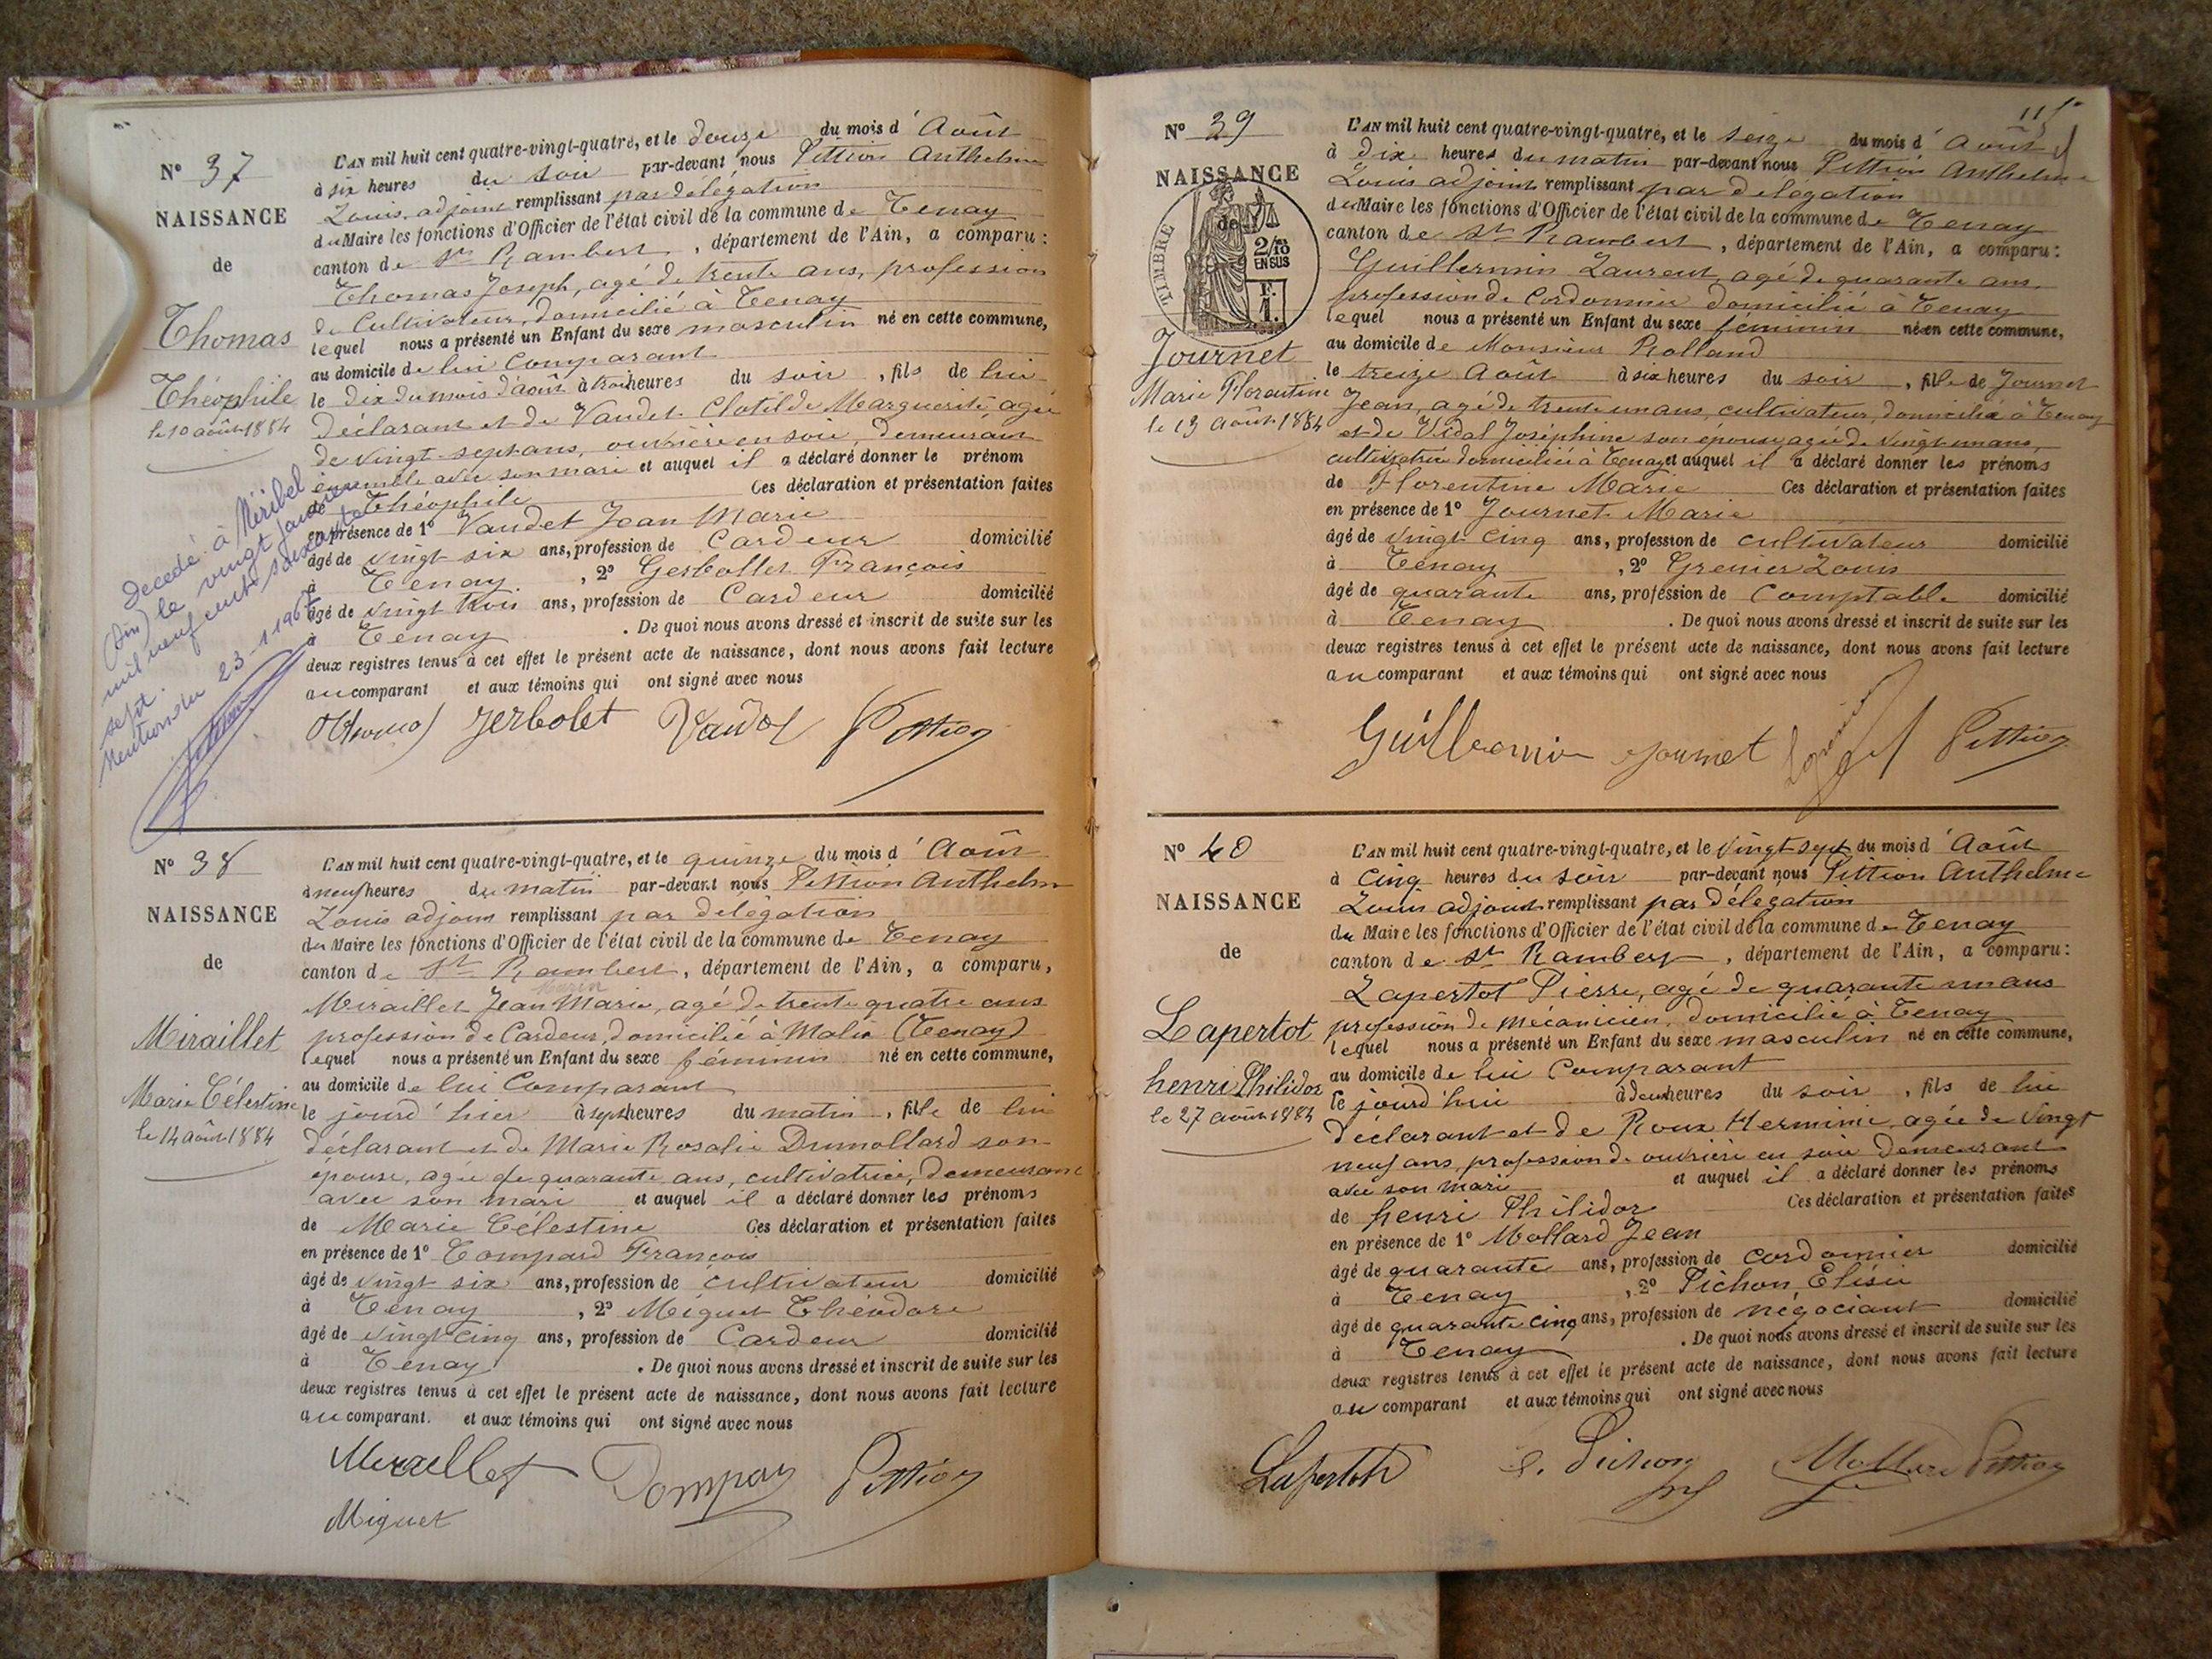 N° 37
NAISSANCE
de
Thomas
Théophile
le 10 août 1884
L'AN mil huit cent quatre-vingt-quatre, et le douze du mois d'Août
à six heures du soir par-devant nous Pittion Anthelme
Louis adjoint remplissant par délégation
du Maire les fonctions d'Officier de l'état civil de la commune de Tenay
canton de St Rambert, département de l'Ain, a comparu :
Thomas Joseph, agé de trente ans, profession
de Cultivateur, domicilié à Tenay
lequel nous a présenté un Enfant du sexe masculin né en cette commune,
au domicile de lui Comparant
le dix du mois d'août à trois heures du soir, fils de lui
déclarant et de Vaudet Clotilde Marguerite, agée
de vingt-sept ans, ouvrière en soie, demeurant
ensemble avec son mari et auquel il a déclaré donner le prénom
de Théophile Ces déclaration et présentation faites
en présence de 1° Vaudet Jean Marie
âgé de vingt six ans, profession de Cardeur domicilié
à Tenay, 2° Gerbollet François
âgé de vingt trois ans, profession de Cardeur domicilié
à Tenay. De quoi nous avons dressé et inscrit de suite sur les
deux registres tenus à cet effet le présent acte de naissance, dont nous avons fait lecture
au comparant et aux témoins qui ont signé avec nous
Thomas Jerbolet Vaudet Pittion
Decédé à Miribel
(Ain) le vingt janvier
mil neuf cent soixante
sept.
Mention du 23-1-1967
N° 38
NAISSANCE
de
Miraillet
Marie Célestine
le 14 août 1884
L'AN mil huit cent quatre-vingt-quatre, et le quinze du mois d'Août
à neuf heures du matin par-devant nous Pittion Anthelme
Louis adjoint remplissant par délégation
du Maire les fonctions d'Officier de l'état civil de la commune de Tenay
canton de St Rambert, département de l'Ain, a comparu,
Marin
Miraillet Jean Marie, agé de trente quatre ans
profession de Cardeur, domicilié à Malix (Tenay)
lequel nous a présenté un Enfant du sexe féminin né en cette commune,
au domicile de lui Comparant
le jourd'hier à sept heures du matin, fille de lui
déclarant et de Marie Rosalie Dumollard son
épouse, agée de quarante ans, cultivatrice, demeurant
avec son mari et auquel il a déclaré donner les prénoms
de Marie Célestine Ces déclaration et présentation faites
en présence de 1° Compard François
âgé de vingt six ans, profession de cultivateur domicilié
à Tenay, 2° Miguet Théodore
âgé de vingt cinq ans, profession de Cardeur domicilié
à Tenay. De quoi nous avons dressé et inscrit de suite sur les
deux registres tenus à cet effet le présent acte de naissance, dont nous avons fait lecture
au comparant. et aux témoins qui ont signé avec nous
Miraillet Pittion
Miguet
115
N° 39
NAISSANCE
de
TIMBRE
2/10
EN SUS
F.
1.
Journet
Marie Florentine
le 13 août 1884
L'AN mil huit cent quatre-vingt-quatre, et le seize du mois d'Août
à dix heures du matin par-devant nous Pittion Anthelme
Louis adjoint remplissant par délégation
du Maire les fonctions d'Officier de l'état civil de la commune de Tenay
canton de St Rambert, département de l'Ain, a comparu :
Guillermin Laurent agé de quarante ans
profession de Cordonnier domicilié à Tenay
lequel nous a présenté un Enfant du sexe féminin né en cette commune,
au domicile de Monsieur Rolland
le treize Août à six heures du soir, fille de Journet
Jean, agé de trente un ans, cultivateur, domicilié à Tenay
et de Vidal Joséphine son épouse agée de vingt-un ans,
cultivatrice domiciliée à Tenay et auquel il a déclaré donner les prénoms
de Florentine Marie Ces déclaration et présentation faites
en présence de 1° Journet Marie
âgé de vingt cinq ans, profession de cultivateur domicilié
à Tenay, 2° Grenier Louis
âgé de quarante ans, profession de Comptable domicilié
à Tenay. De quoi nous avons dressé et inscrit de suite sur les
deux registres tenus à cet effet le présent acte de naissance, dont nous avons fait lecture
au comparant et aux témoins qui ont signé avec nous
Guillermin Journet Pittion
N° 40
NAISSANCE
de
Lapertot
henri Philidor
le 27 août 1884
L'AN mil huit cent quatre-vingt-quatre, et le vingt sept du mois d'Août
à cinq heures du soir par-devant nous Pittion Anthelme
Louis adjoint remplissant par délégation
du Maire les fonctions d'Officier de l'état civil de la commune de Tenay
canton de St Rambert, département de l'Ain, a comparu :
Lapertot Pierre, agé de quarante un ans
profession de mécanicien, domicilié à Tenay
lequel nous a présenté un Enfant du sexe masculin né en cette commune,
au domicile de lui Comparant
le jourd'hui à deux heures du soir, fils de lui
déclarant et de Roux Herminie agée de vingt
neuf ans, profession de ouvrière en soie demeurant
avec son mari et auquel il a déclaré donner les prénoms
de henri Philidor Ces déclaration et présentation faites
en présence de 1° Mollard Jean
âgé de quarante ans, profession de cordonnier domicilié
à Tenay, 2° Pichon Elisée
âgé de quarante cinq ans, profession de négociant domicilié
à Tenay. De quoi nous avons dressé et inscrit de suite sur les
deux registres tenus à cet effet le présent acte de naissance, dont nous avons fait lecture
au comparant et aux témoins qui ont signé avec nous
Lapertot e. Pichon Mollard Pittion